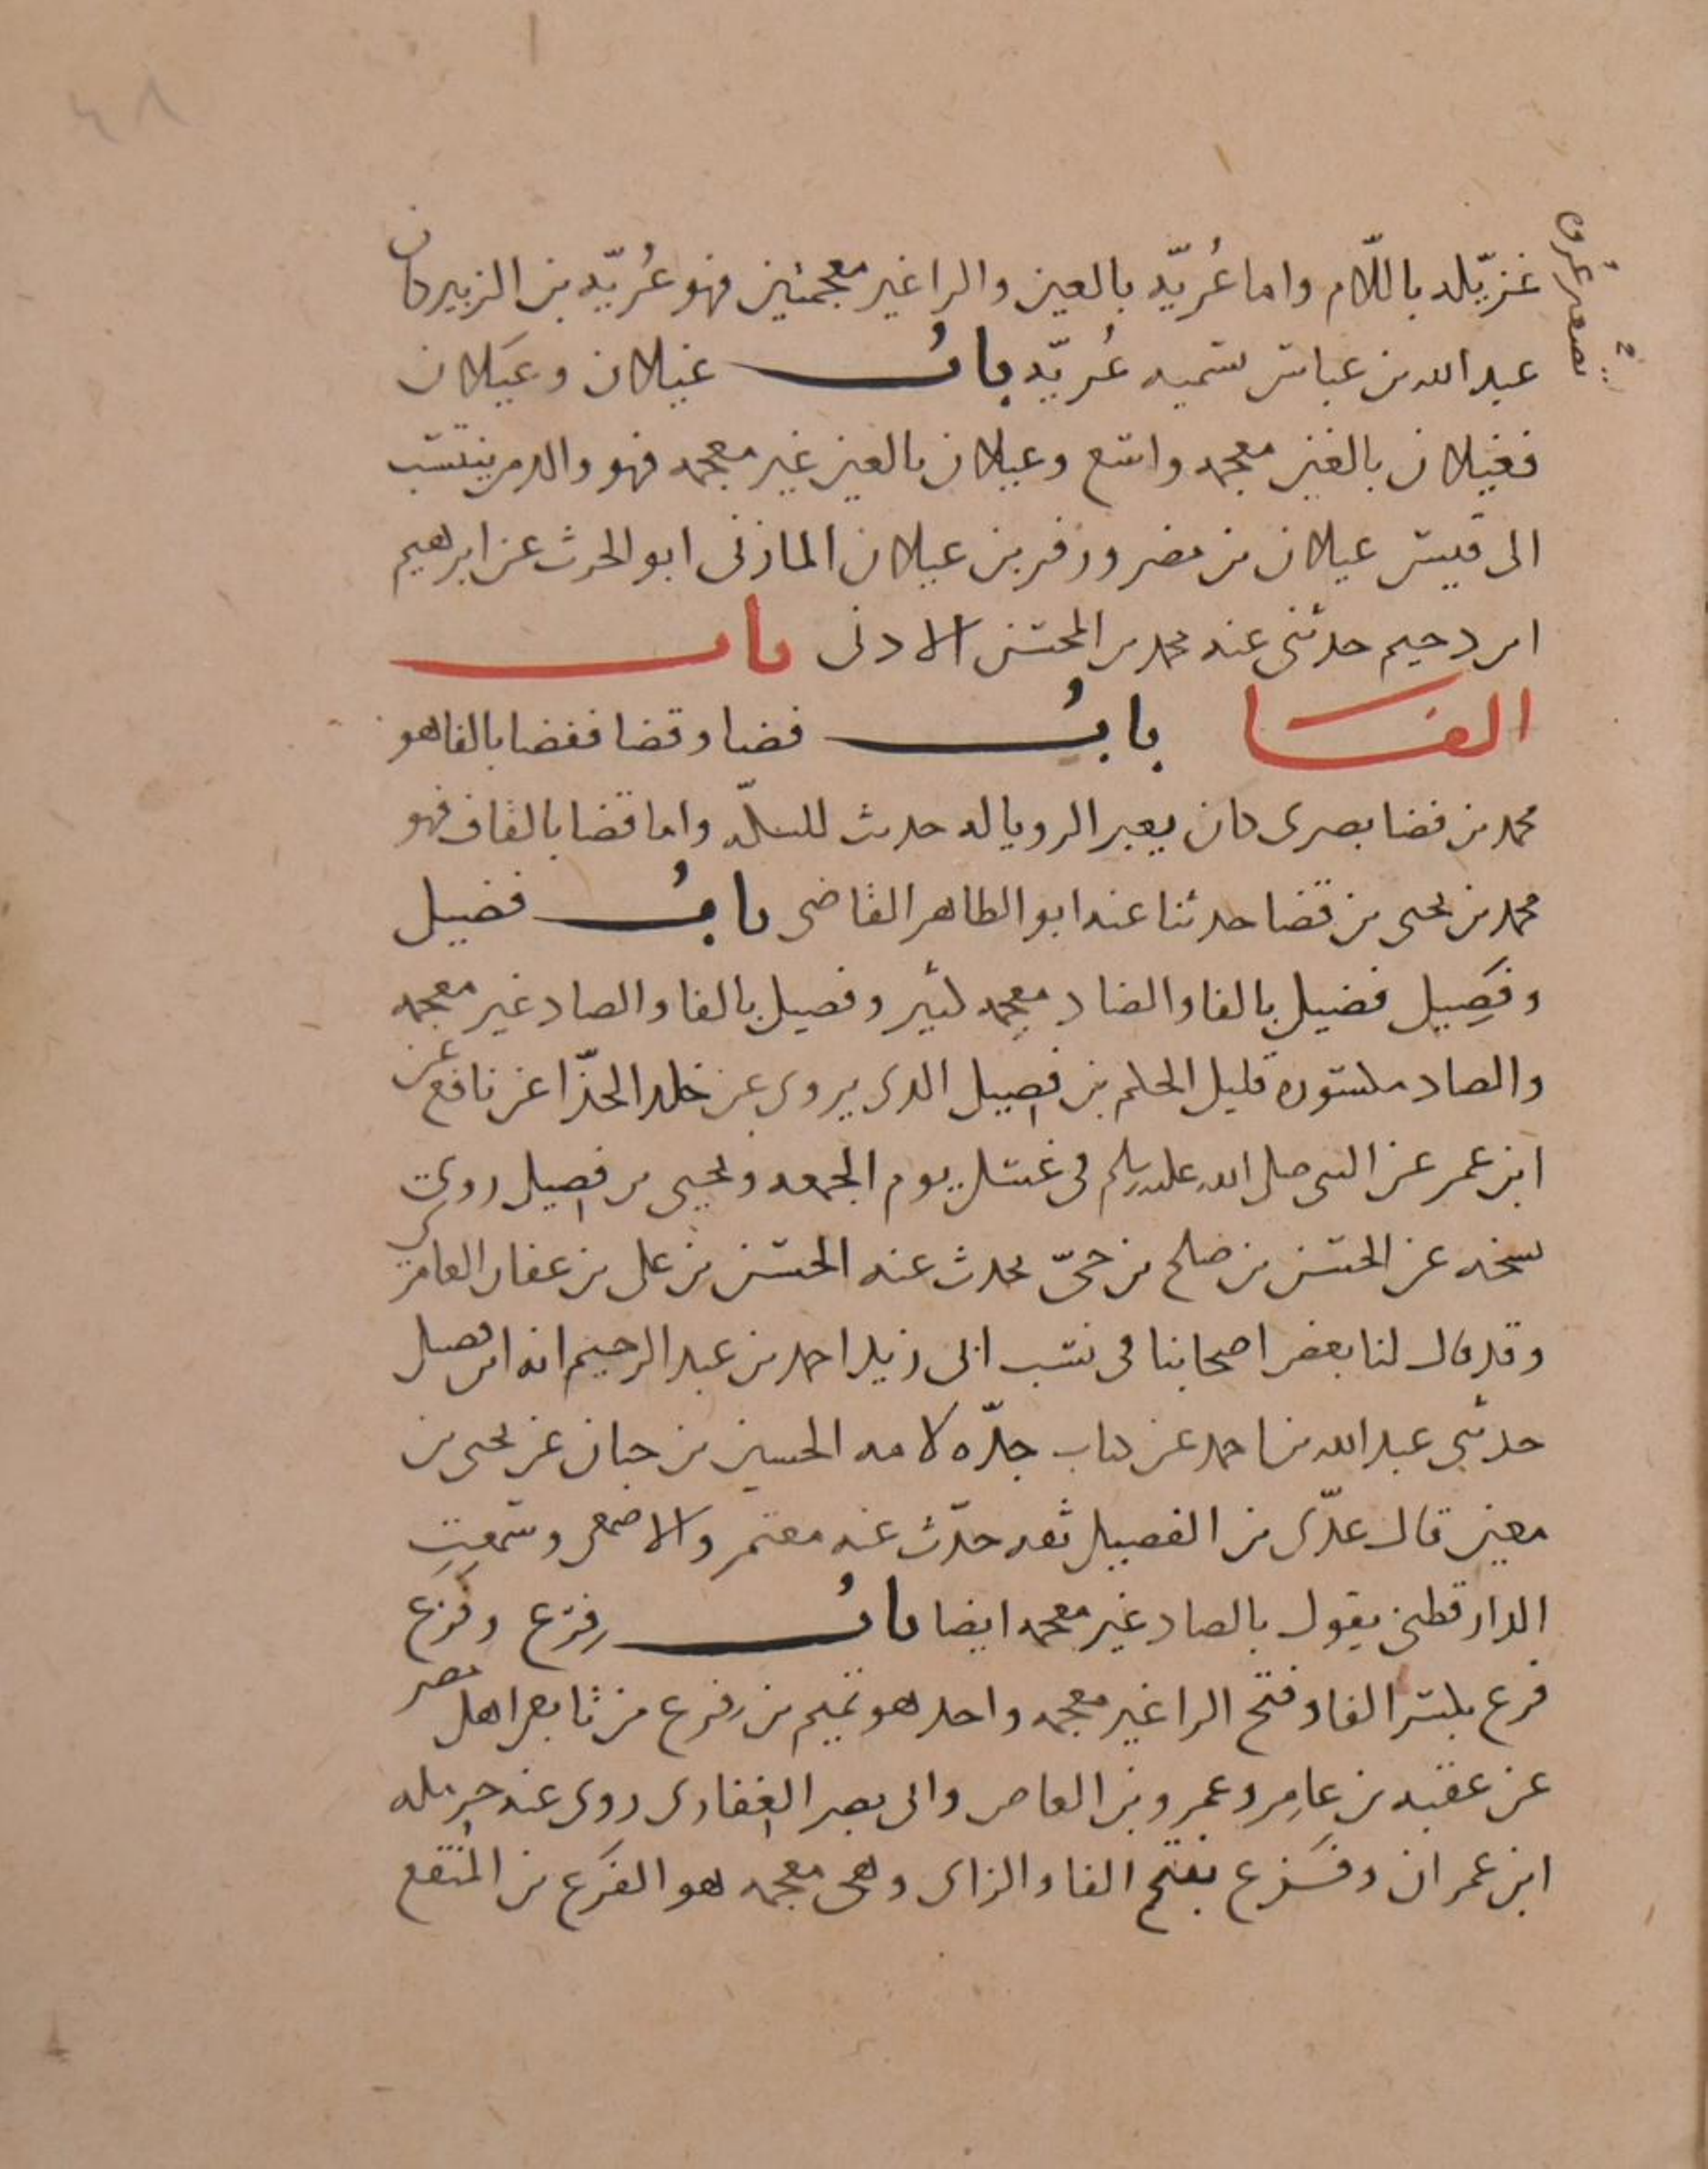 غزيّله باللّام واما عُريّه بالعين والرا غير معجمتين فهو عُريّه بن الزبير كان
عبد الله بن عباس يسميه عُريّه بابُ غيلان وعَيلان
فغيلان بالغين معجمه واسع وعيلان بالعين غير معجمه فهو والد من ينتسب
الى قيس عيلان بن مضر وزفر بن عيلان المازني ابو الحرث عن ابرهيم
ابن دحيم حدثني عنه محمد بن الحسن الادنى باب
الفا بابُ فضا وقضا ففضا بالفا هو
محمد بن فضا بصرى كان يعبر الرويا له حديث السكّه واما قضا بالقاف فهو
محمد بن يحيى بن قضا حدثنا عنه ابو الطاهر القاضى بابُ فضيل
وفَصِيل فضيل بالفا والضاد معجمه كثير وفصيل بالفا والصاد غير معجمه
والصاد مكسوره قليل الحكم بن فصيل الذى يروى عن خلد الحذّا عن نافع عن
ابن عمر عن النبى صلى الله عليه وسلم فى غسل يوم الجمعه ويحيى بن فصيل روى
نسخه عن الحسن بن صلح بن حىّ يحدث عنه الحسن بن على بن عفان العامرى
وقد قال لنا بعض اصحابنا فى نسب ابى زيد احمد بن عبد الرحيم انه ابن فصيل
حدثنى عبد الله بن احمد عن كتاب جدّه لامه الحسين بن حبان عن يحيى بن
معين قال عدّى بن الفصيل ثقه حدّث عنه معتمر والاصمعى وسمعت
الدارقطنى يقول بالصاد غير معجمه ايضا بابُ فِرَع وفَزَع
فرع بكسر الفا وفتح الرا غير معجمه واحد هو تميم بن فرع من تابعى اهل مصر
عن عقبه بن عامر وعمرو بن العاص وابى بصره الغفارى روى عنه حرمله
ابن عمران وفَزَع بفتح الفا والزاى وهى معجمه هو الفزع بن المنقع
تصغير عُروه